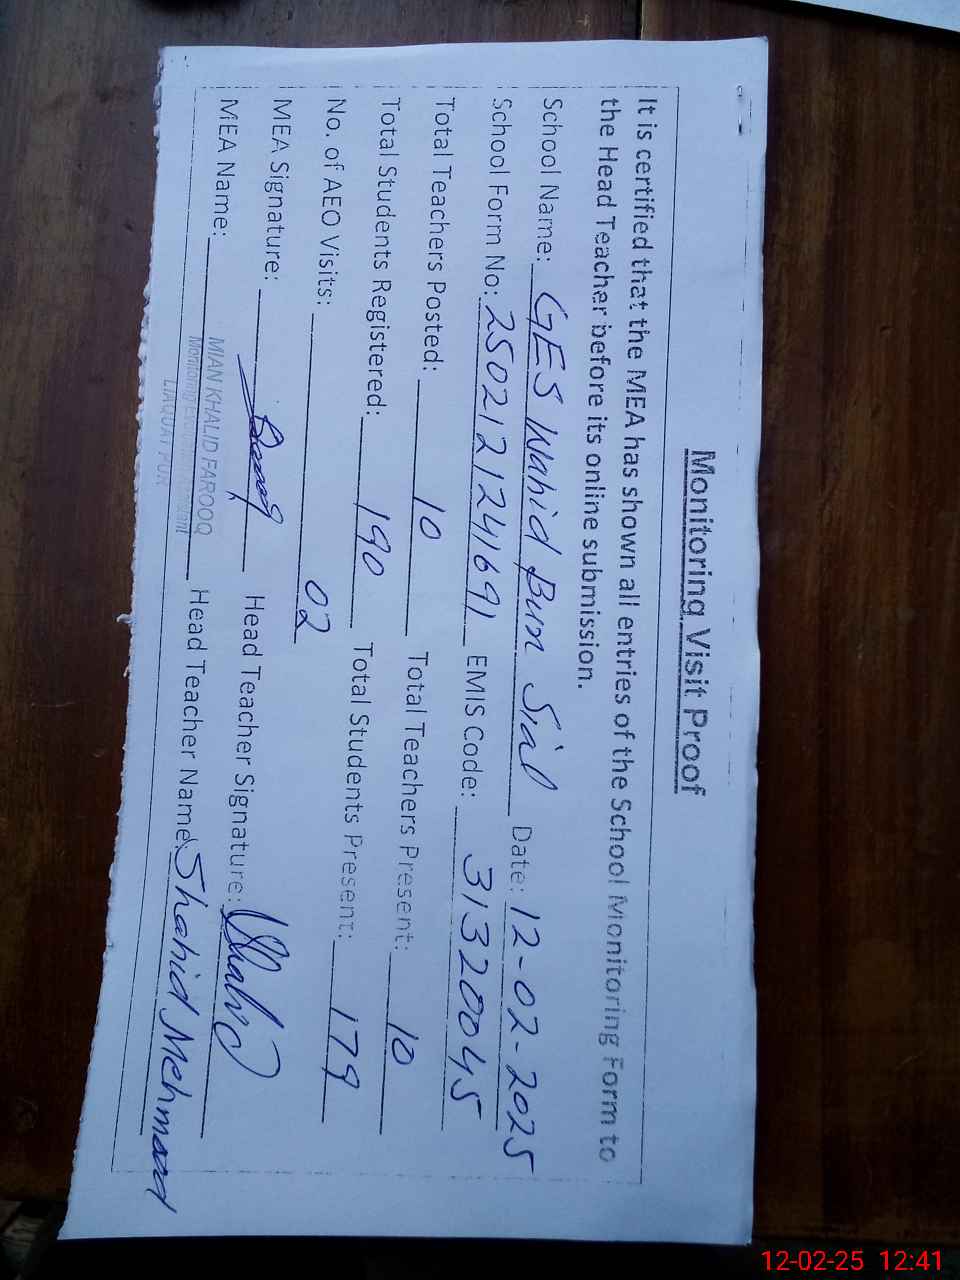 Monitoring Visit Proof
It is certified that the MEA has shown all entries of the School Monitoring Form to
the Head Teacher before its online submission.
School Name: GES Wahid Bux Sial Date: 12-02-2025
School Form No: 2502121241691 EMIS Code: 31320045
Total Teachers Posted: 10 Total Teachers Present: 10
Total Students Registered: 190 Total Students Present: 179
No. of AEO Visits: 02
MEA Signature: Head Teacher Signature: Shahid
MEA Name: MIAN KHALID FAROOQ Head Teacher Name: Shahid Mehmood
Monitoring Evaluation Assistant
LIAQUAT PUR
12-02-25 12:41